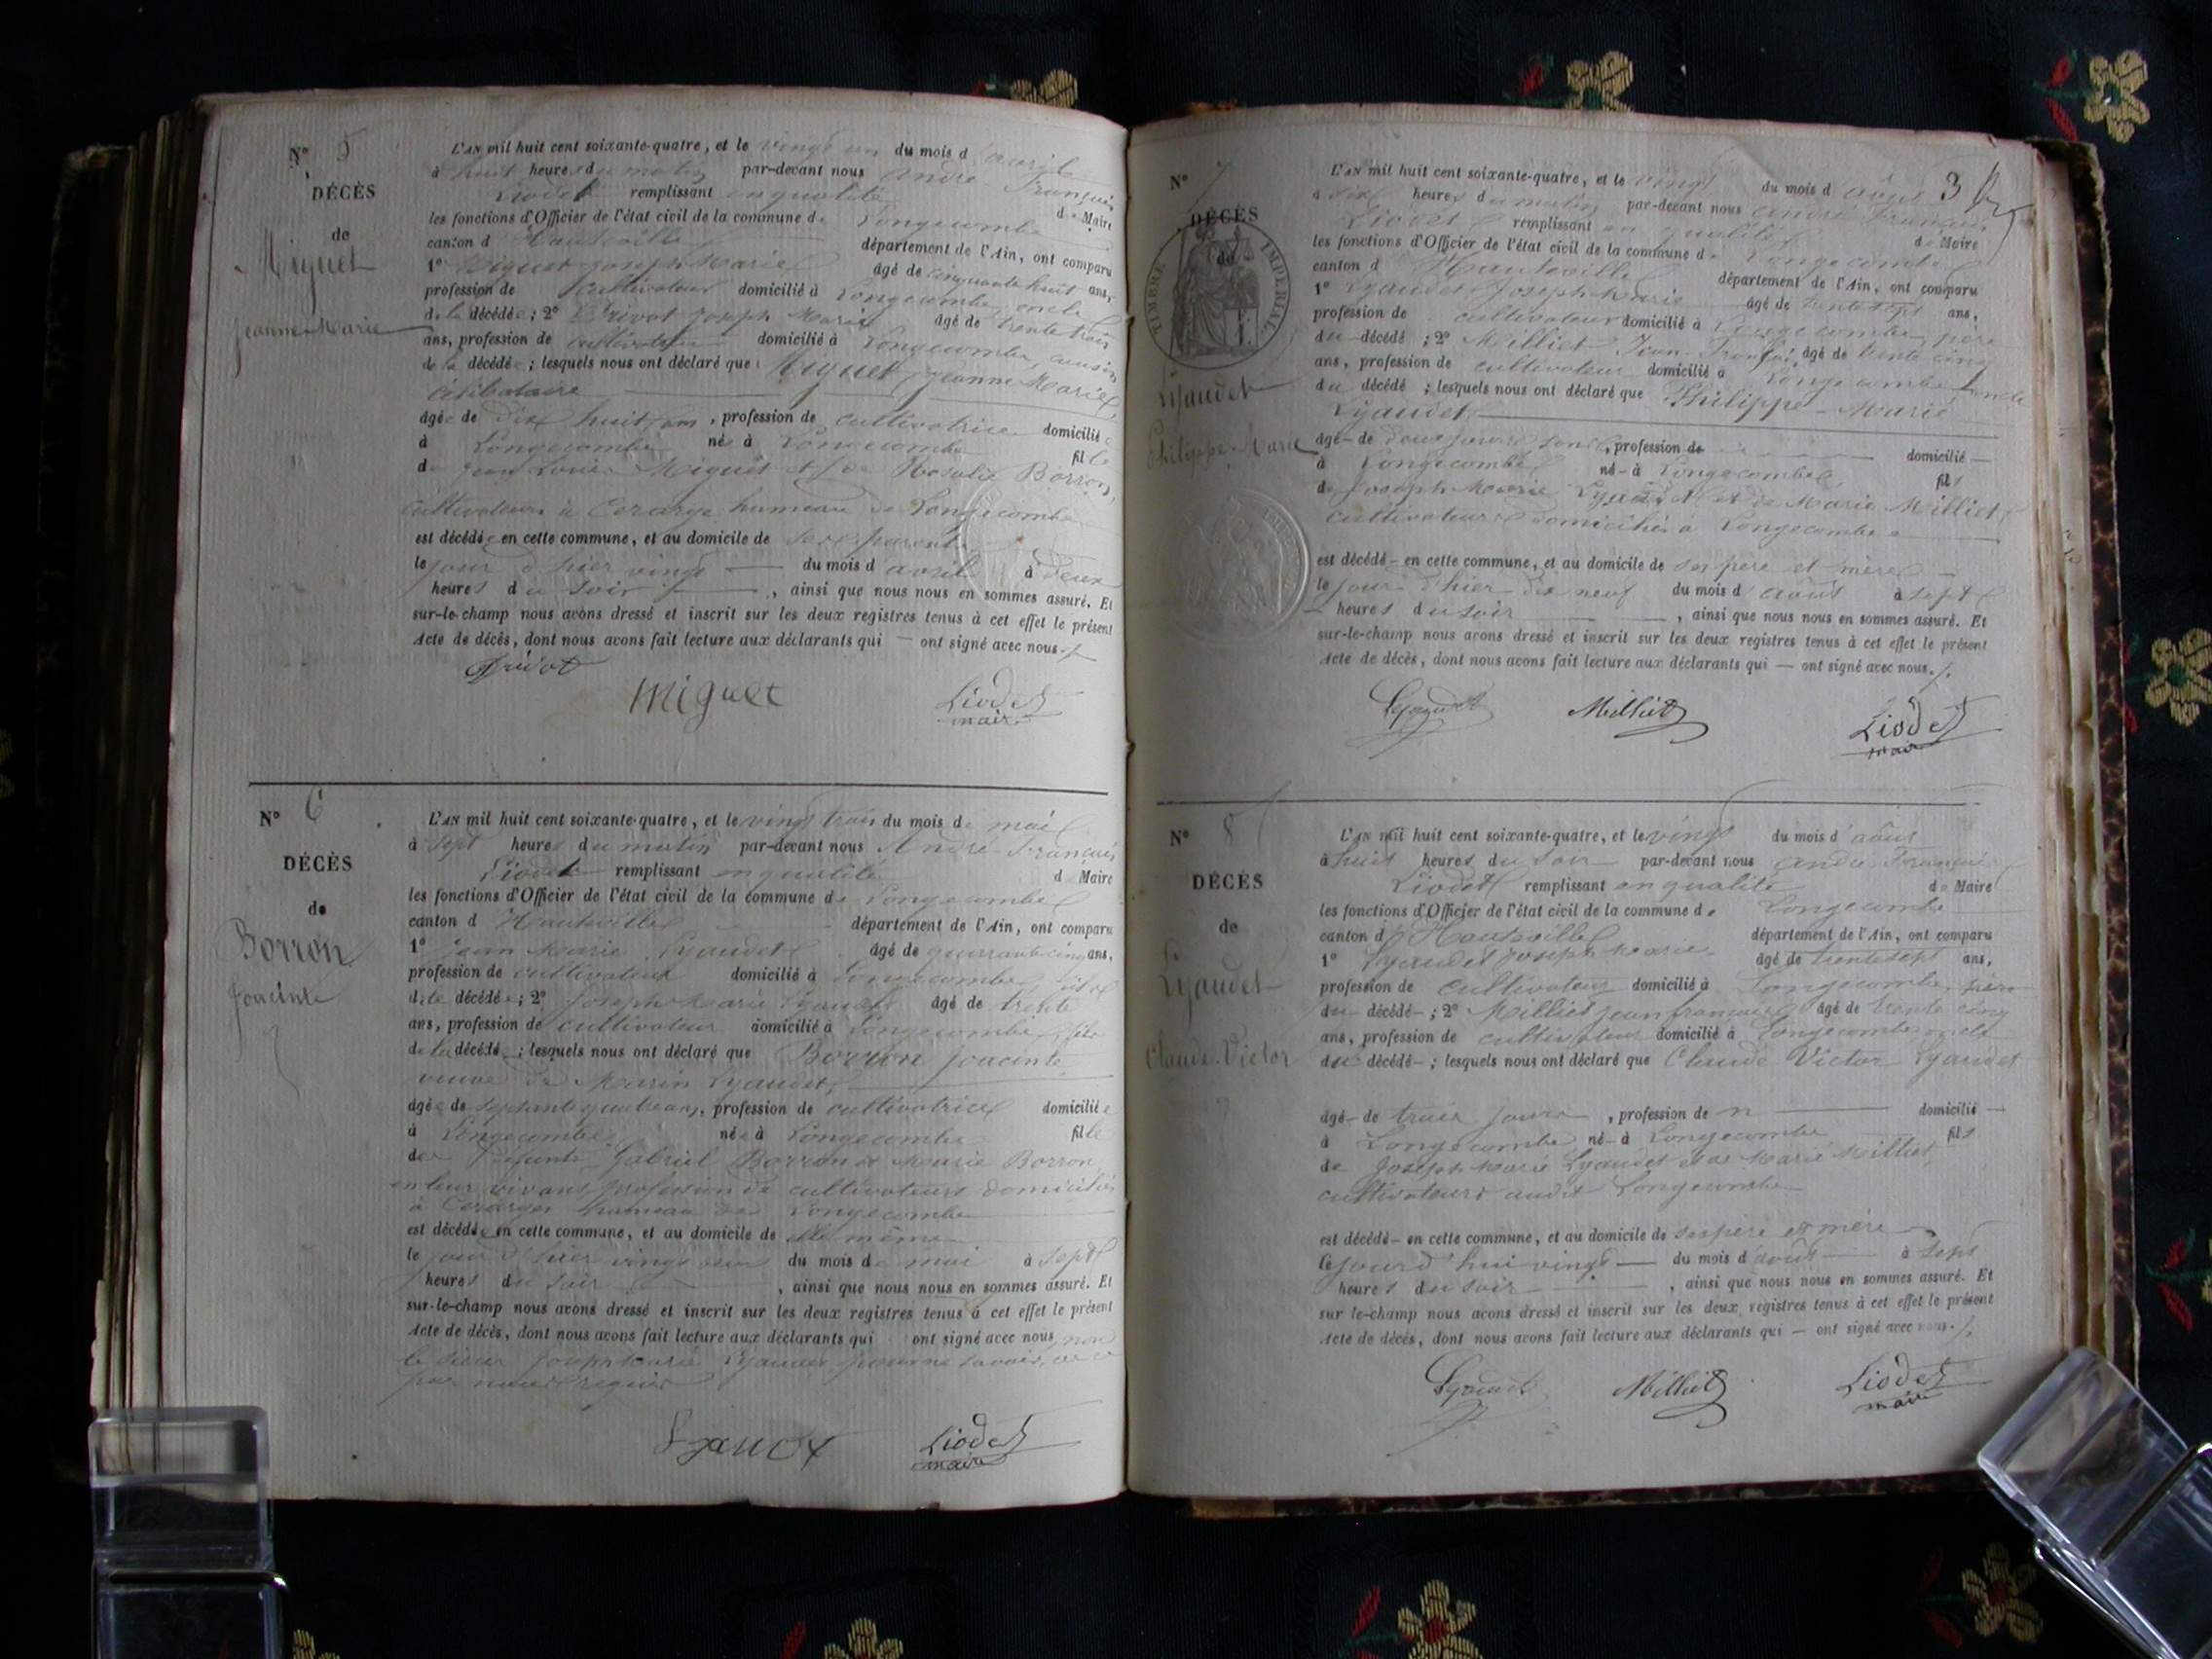 N° 5
DÉCÈS
de
Miguet
Jeanne Marie
L'AN mil huit cent soixante-quatre, et le vingt un du mois d'avril
à huit heures du matin par-devant nous André François
Liodet remplissant en qualité de Maire
les fonctions d'Officier de l'état civil de la commune de Longecombe
canton d'Hauteville département de l'Ain, ont comparu
1° Miguet Joseph Marie âgé de cinquante huit ans,
profession de cultivateur domicilié à Longecombe, oncle
de la décédée ; 2° Drivot Joseph Marie âgé de trente trois
ans, profession de cultivateur domicilié à Longecombe, cousin
de la décédée ; lesquels nous ont déclaré que Miguet Jeanne Marie
célibataire
âgée de dix huit ans, profession de cultivatrice domiciliée
à Longecombe née à Longecombe fille
de Jean Louis Miguet et de Rosalie Borron,
cultivateurs à Cerarge hameau de Longecombe
est décédée en cette commune, et au domicile de ses parents
le jour d'hier vingt du mois d'avril à deux
heures du soir, ainsi que nous nous en sommes assuré. Et
sur-le-champ nous avons dressé et inscrit sur les deux registres tenus à cet effet le présent
Acte de décès, dont nous avons fait lecture aux déclarants qui — ont signé avec nous.
Drivot
Miguet
Liodet
maire
N° 6
DÉCÈS
de
Borron
Joacinte
L'AN mil huit cent soixante-quatre, et le vingt trois du mois de mai
à sept heures du matin par-devant nous André François
Liodet remplissant en qualité de Maire
les fonctions d'Officier de l'état civil de la commune de Longecombe
canton d'Hauteville département de l'Ain, ont comparu
1° Jean Marie Lyaudet âgé de quarante cinq ans,
profession de cultivateur domicilié à Longecombe, fils
de la décédée ; 2° Joseph Marie Lyaudet âgé de trente
ans, profession de cultivateur domicilié à Longecombe, fils
de la décédée ; lesquels nous ont déclaré que Borron Joacinte
veuve de Marin Lyaudet,
âgée de septante quatre ans, profession de cultivatrice domiciliée
à Longecombe, née à Longecombe fille
des défunts Gabriel Borron et Marie Borron
en leur vivant profession de cultivateurs domiciliés
à Cerarges hameau de Longecombe
est décédée en cette commune, et au domicile de elle même
le jour d'hier vingt deux du mois de mai à sept
heures du soir, ainsi que nous nous en sommes assuré. Et
sur-le-champ nous avons dressé et inscrit sur les deux registres tenus à cet effet le présent
Acte de décès, dont nous avons fait lecture aux déclarants qui ont signé avec nous non
le sieur Joseph Marie Lyaudet pour ne savoir, de ce
par nous requis
Lyaudet
Liodet
maire
3
N° 7
DÉCÈS
de
TIMBRE IMPÉRIAL
Lyaudet
Philippe-Marie
L'AN mil huit cent soixante-quatre, et le vingt du mois d'août
à six heures du matin par-devant nous André François
Liodet remplissant en qualité de Maire
les fonctions d'Officier de l'état civil de la commune de Longecombe
canton d'Hauteville département de l'Ain, ont comparu
1° Lyaudet Joseph Marie âgé de trente sept ans,
profession de cultivateur domicilié à Longecombe, père
du décédé ; 2° Milliet Jean François âgé de trente cinq
ans, profession de cultivateur domicilié à Longecombe oncle
du décédé ; lesquels nous ont déclaré que Philippe-Marie
Lyaudet,
âgé de deux jours, profession de domicilié
à Longecombe né à Longecombe, fils
de Joseph Marie Lyaudet et de Marie Milliet
cultivateurs domiciliés à Longecombe
est décédé en cette commune, et au domicile de ses père et mère
le jour d'hier dix neuf du mois d'août à sept
heures du soir, ainsi que nous nous en sommes assuré. Et
sur-le-champ nous avons dressé et inscrit sur les deux registres tenus à cet effet le présent
Acte de décès, dont nous avons fait lecture aux déclarants qui — ont signé avec nous.
Lyaudet
Milliet
Liodet
maire
N° 8
DÉCÈS
de
Lyaudet
Claude-Victor
L'AN mil huit cent soixante-quatre, et le vingt du mois d'août
à huit heures du soir par-devant nous André François
Liodet remplissant en qualité de Maire
les fonctions d'Officier de l'état civil de la commune de Longecombe
canton d'Hauteville département de l'Ain, ont comparu
1° Lyaudet Joseph Marie âgé de trente sept ans,
profession de cultivateur domicilié à Longecombe, père
du décédé ; 2° Milliet Jean François âgé de trente cinq
ans, profession de cultivateur domicilié à Longecombe oncle
du décédé ; lesquels nous ont déclaré que Claude Victor Lyaudet
âgé de trois jours, profession de domicilié
à Longecombe né à Longecombe fils
de Joseph Marie Lyaudet et de Marie Milliet,
cultivateurs audit Longecombe
est décédé en cette commune, et au domicile de ses père et mère
le jourd'hui vingt du mois d'août à sept
heures du soir, ainsi que nous nous en sommes assuré. Et
sur le-champ nous avons dressé et inscrit sur les deux registres tenus à cet effet le présent
Acte de décès, dont nous avons fait lecture aux déclarants qui — ont signé avec nous.
Lyaudet
Milliet
Liodet
maire